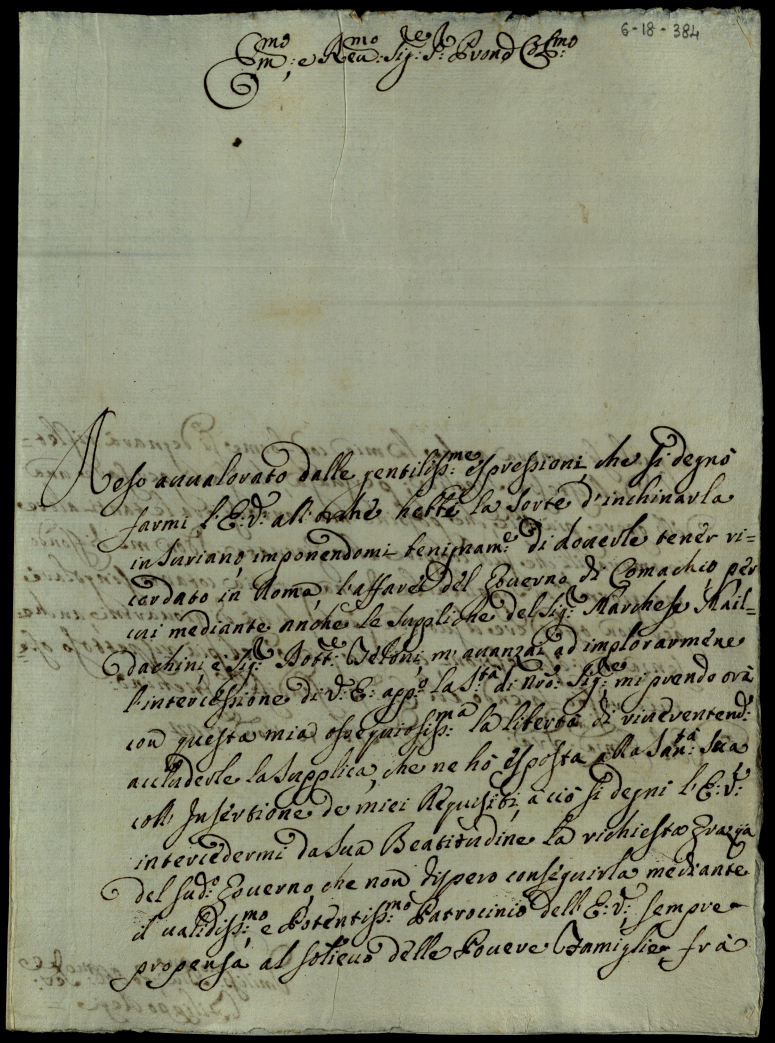 6-18-384
Em̃mo: e Reũmo: Sig:re P:re Prond Colmo:
Reso auualorato dalle gentiliss:me espressioni, che si degnò
farmi l'E: V: all'orche hebbi la sorte d'inchinarla
in Suriano, imponendomi benignam:e di douerle tener ri=
cordato in Roma, l'affare del Gouerno di Comachio, per
cui mediante anche le suppliche del Sig:r Marchese Mail=
dachini, e Sig:r Dott:re Teloni, m'auanzai ad implorarmene
l'intercessione di V: E: app:o la S:tà di Nrõ: Sig:re, mi prendo ora
con questa mia ossequiosiss:ma la libertà di riuerentem:e
accluderle la supplica, che ne hò esposta alla San:tà Sua
coll'Insertione de miei Requisiti, acciò si degni l'E: V:
intercedermi da Sua Beatitudine la richiesta Grazia
del sud:o Gouerno, che non dispero conseguirla mediante
il ualidiss:mo e Potentiss:mo Patrocinio dell'E: V: sempre
propensa al solieuo delle Pouere Famiglie frà